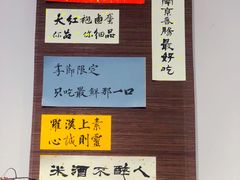 大红袍卤蛋
你品 你细品
季節限定
只吃最鮮那一口
羅漢上素
心誠則靈
米酒不醉人
南京香肠最好吃